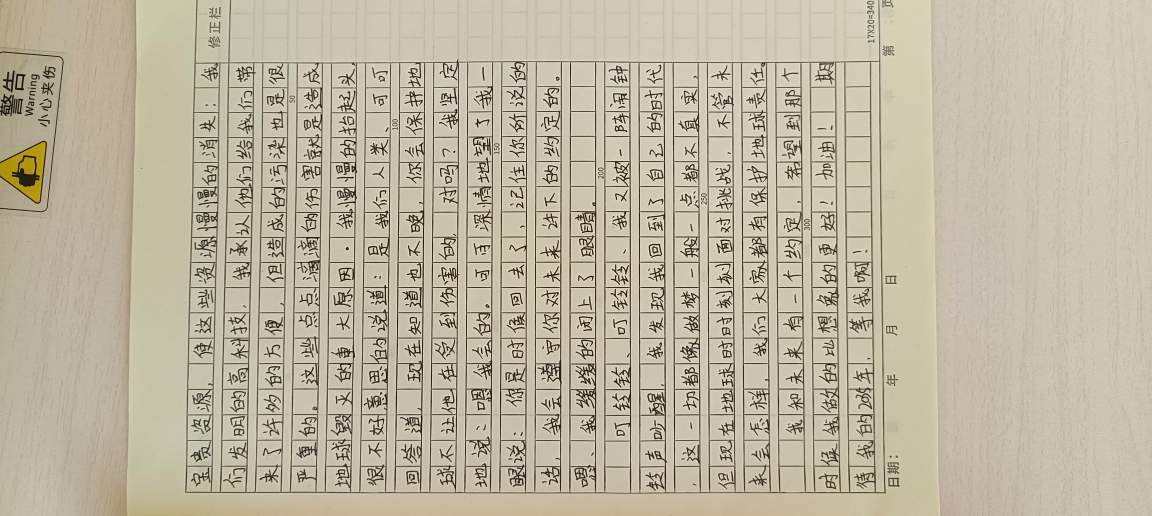 警告
Warning
小心夹伤
修正栏
宝贵资源，使这些资源慢慢的消失：我
们发明的高科技，我承认他们给我们带
来了许多的方便，但造成的污染也是很
严重的。这些点点滴滴的伤害就是造成
50
地球毁灭的重大原因．我慢慢的抬起头，
很不好意思的说道：是我们人类、可可
100
回答道，现在知道也不晚，你会保护地
球不让他在受到伤害的，对吗？我坚定
地说：嗯我会的。可可深情地望了我一
150
眼说：你是时候回去了，记住你所说的
话，我会遵守你对未来许下的约定的。
嗯、我缓缓的闭上了眼睛。
200
叮铃铃、叮铃铃、我又被一阵闹钟
铃声吵醒，我发现我回到了自己的时代
，这一切都像做梦一般一点都不真实，
250
但现在地球时时刻刻面对挑战，不管未
来会怎样，我们大家都有保护地球责任。
我和未来有一个约定，希望到那个
300
时候我做的比想象的更好！加油！期
待我的2035年，等我啊！
17X20=340
日期： 年 月 日 第 页